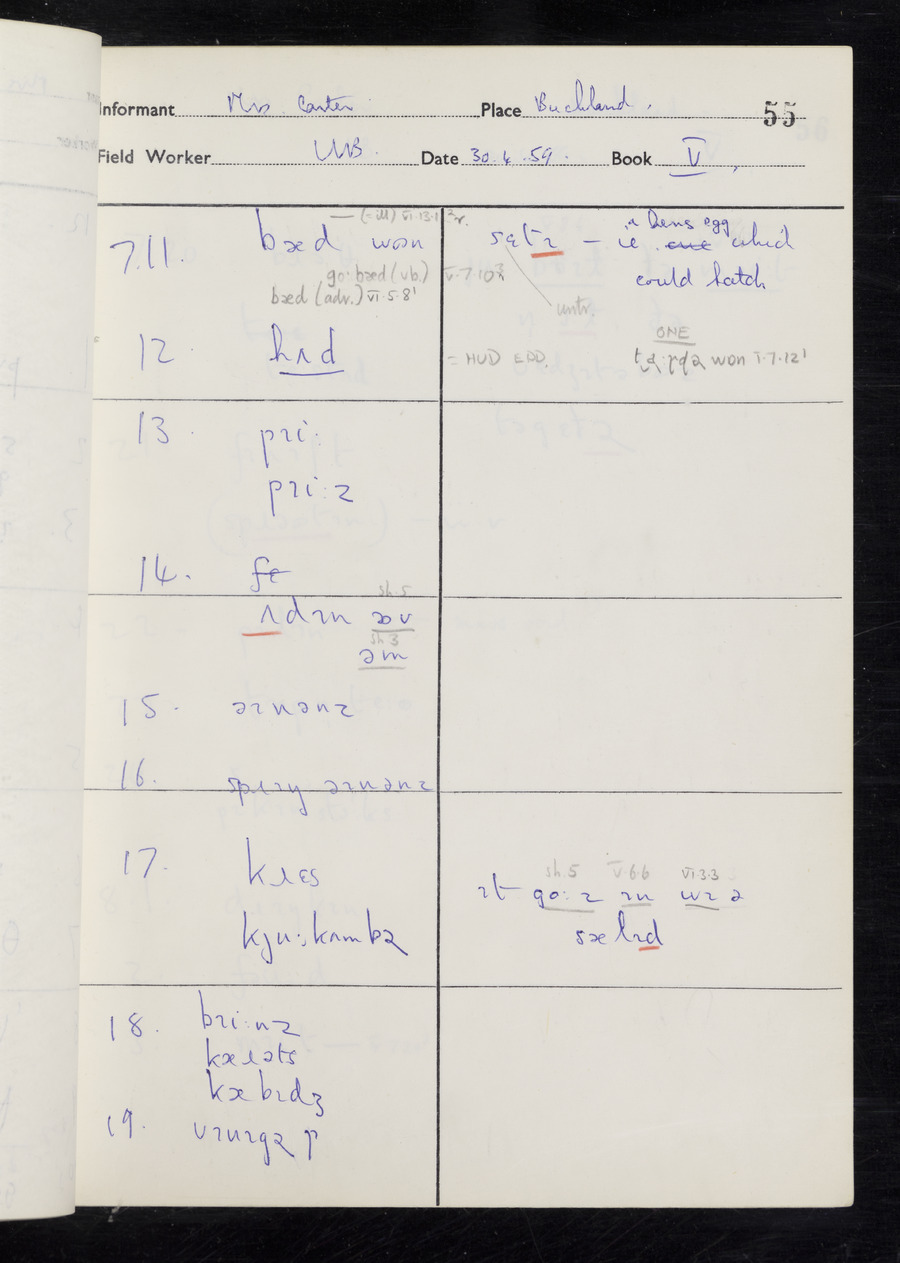 Informant Mrs Carter Place Buckland. 55
Field Worker WB. Date 30.4.59. Book V
— (=ill) VI.13.1
7.11. bæd wɒn
— ie a hens egg which
could hatch
go: bæd (vb.) V.7.10
bæd (adv.) VI.5.8¹
untr.
12 hʌd = HUD EDD. ONE
wɒn V.7.12¹
13. pɹi:
pɹi:z
14.
sh.5
ʌdəɹn əv
sh.3
əm
15. əɪnənz
16. əɪnənz
17. kɹɛs
sh.5 V.6.6 VI.3.3
ɪt go:z ɪn wɪ ə
kju:kʌmbə sælɪd
18. bɪi:nz
kæɹəts
kæbɪdʒ
19. vɪnɪgə